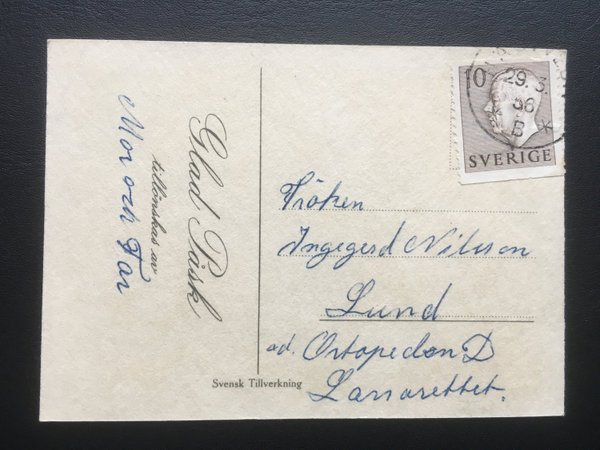 Glad Påsk
tillönskas av
Mor och Far
10
29.3.
56
B
SVERIGE
Fröken
Ingegerd Nilsson
Lund
ad. Ortopeden D
Lasarettet.
Svensk Tillverkning